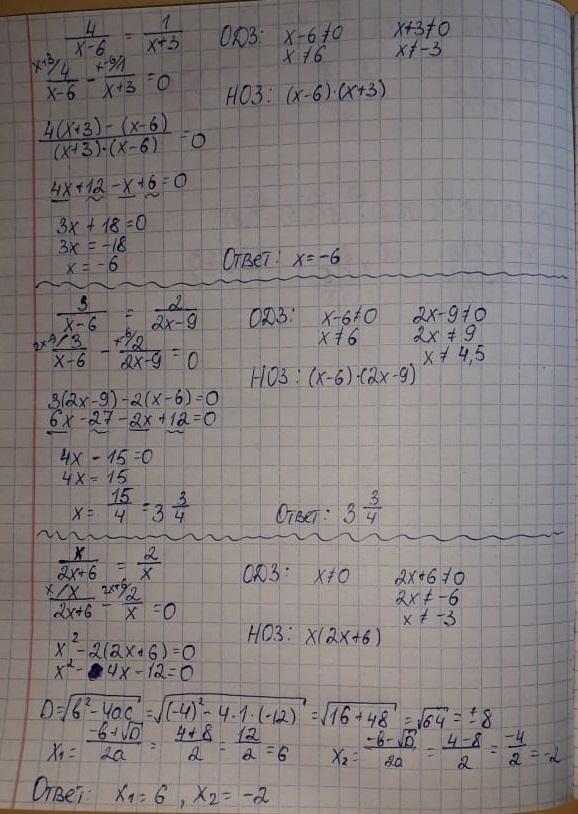 4/(x-6) = 1/(x+3) ОДЗ: x-6≠0 x+3≠0
x≠6 x≠-3
x+3/4/(x-6) - x-6/1/(x+3) = 0 НОЗ: (x-6)·(x+3)
(4(x+3) - (x-6))/((x+3)·(x-6)) = 0
4x+12-x+6=0
3x+18=0
3x=-18
x=-6 Ответ: x=-6
3/(x-6) = 2/(2x-9) ОДЗ: x-6≠0 2x-9≠0
x≠6 2x≠9
x≠4,5
2x-9/3/(x-6) - x-6/2/(2x-9) = 0 НОЗ: (x-6)·(2x-9)
3(2x-9)-2(x-6)=0
6x-27-2x+12=0
4x-15=0
4x=15
x= 15/4 = 3 3/4 Ответ: 3 3/4
x/(2x+6) = 2/x ОДЗ: x≠0 2x+6≠0
2x≠-6
x≠-3
x/x/(2x+6) - 2x+6/2/x = 0 НОЗ: x(2x+6)
x²-2(2x+6)=0
x²-4x-12=0
D=√(b²-4ac) = √((-4)²-4·1·(-12)) = √(16+48) = √64 = ±8
x₁= (-b+√D)/2a = (4+8)/2 = 12/2 = 6 x₂= (-b-√D)/2a = (4-8)/2 = -4/2 = -2
Ответ: x₁=6, x₂=-2